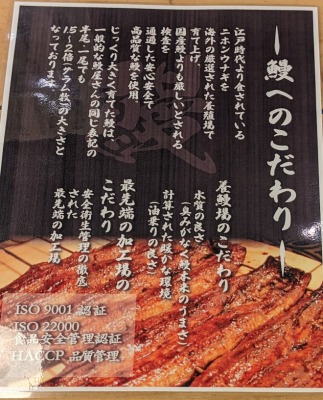 鰻へのこだわり
江戸時代より食されている
ニホンウナギを
海外の厳選された養殖場で
育て上げ
国産鰻よりも厳しいとされる
検査を
通過した安心安全で
高品質な鰻を使用。
じっくり大きく育てた鰻は
一般的な鰻屋さんの同じ表記の
半尾、一尾でも
1.5~2倍(グラム数)の大きさと
なっております。
養鰻場のこだわり
水質の良さ
(臭みがなく鰻本来のうまさ)
計算された豊かな環境
(油乗りの良さ)
最先端の加工場の
こだわり
安全衛生管理の徹底
された
最先端の加工場
ISO 9001 認証
ISO 22000
食品安全管理認証
HACCP 品質管理